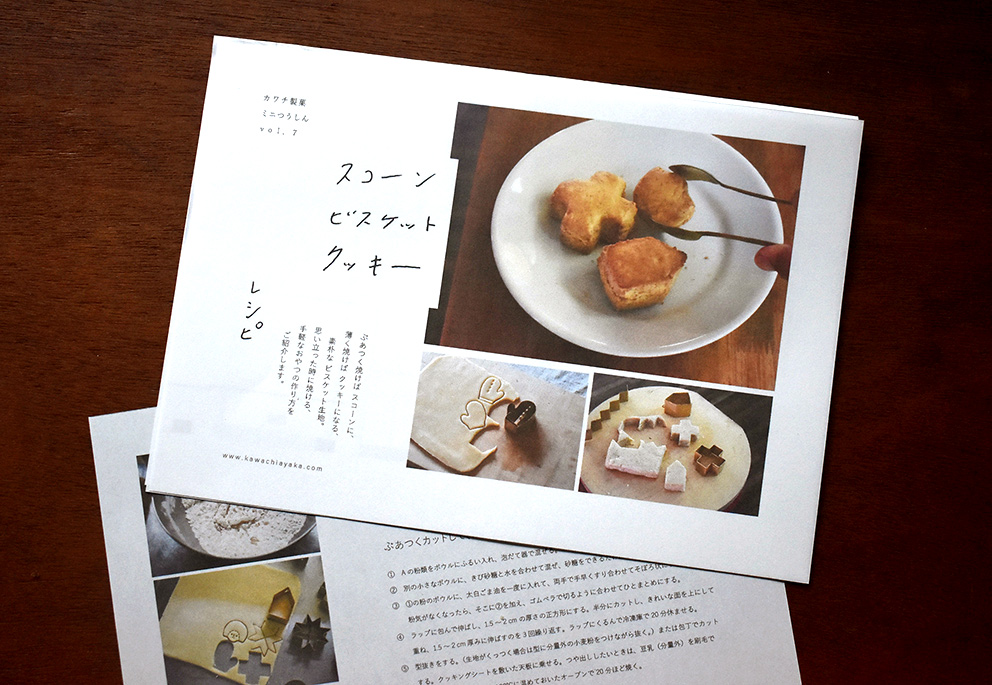 カワチ製菓
ミニつうしん
vol. 7
スコーン
ビスケット
クッキー
レシピ
ぶあつく焼けば スコーンに、
薄く焼けば クッキーになる、
素朴な ビスケット生地。
思い立った時に焼ける、
手軽なおやつの作り方を
ご紹介します。
www.kawachiayaka.com
ぶあつくカットして
① Aの粉類をボウルにふるい入れ、泡だて器で混ぜる。
② 別の小さなボウルに、きび砂糖と水を合わせて混ぜ、砂糖をできるだけ
③ ①の粉のボウルに、太白ごま油を一度に入れて、両手で手早くすり合わせてそぼろ状に
粉気がなくなったら、そこに②を加え、ゴムベラで切るように合わせてひとまとめにする。
④ ラップに包んで伸ばし、1.5〜2cmの厚さの正方形にする。半分にカットし、きれいな面を上にして
重ね、1.5〜2cm厚みに伸ばすのを3回繰り返す。ラップにくるんで冷凍庫で20分休ませる。
⑤ 型抜きをする。(生地がくっつく場合は型に分量外の小麦粉をつけながら抜く。)または包丁でカット
する。クッキングシートを敷いた天板に乗せる。つや出ししたいときは、豆乳(分量外)を刷毛で
℃に温めておいたオーブンで20分ほど焼く。